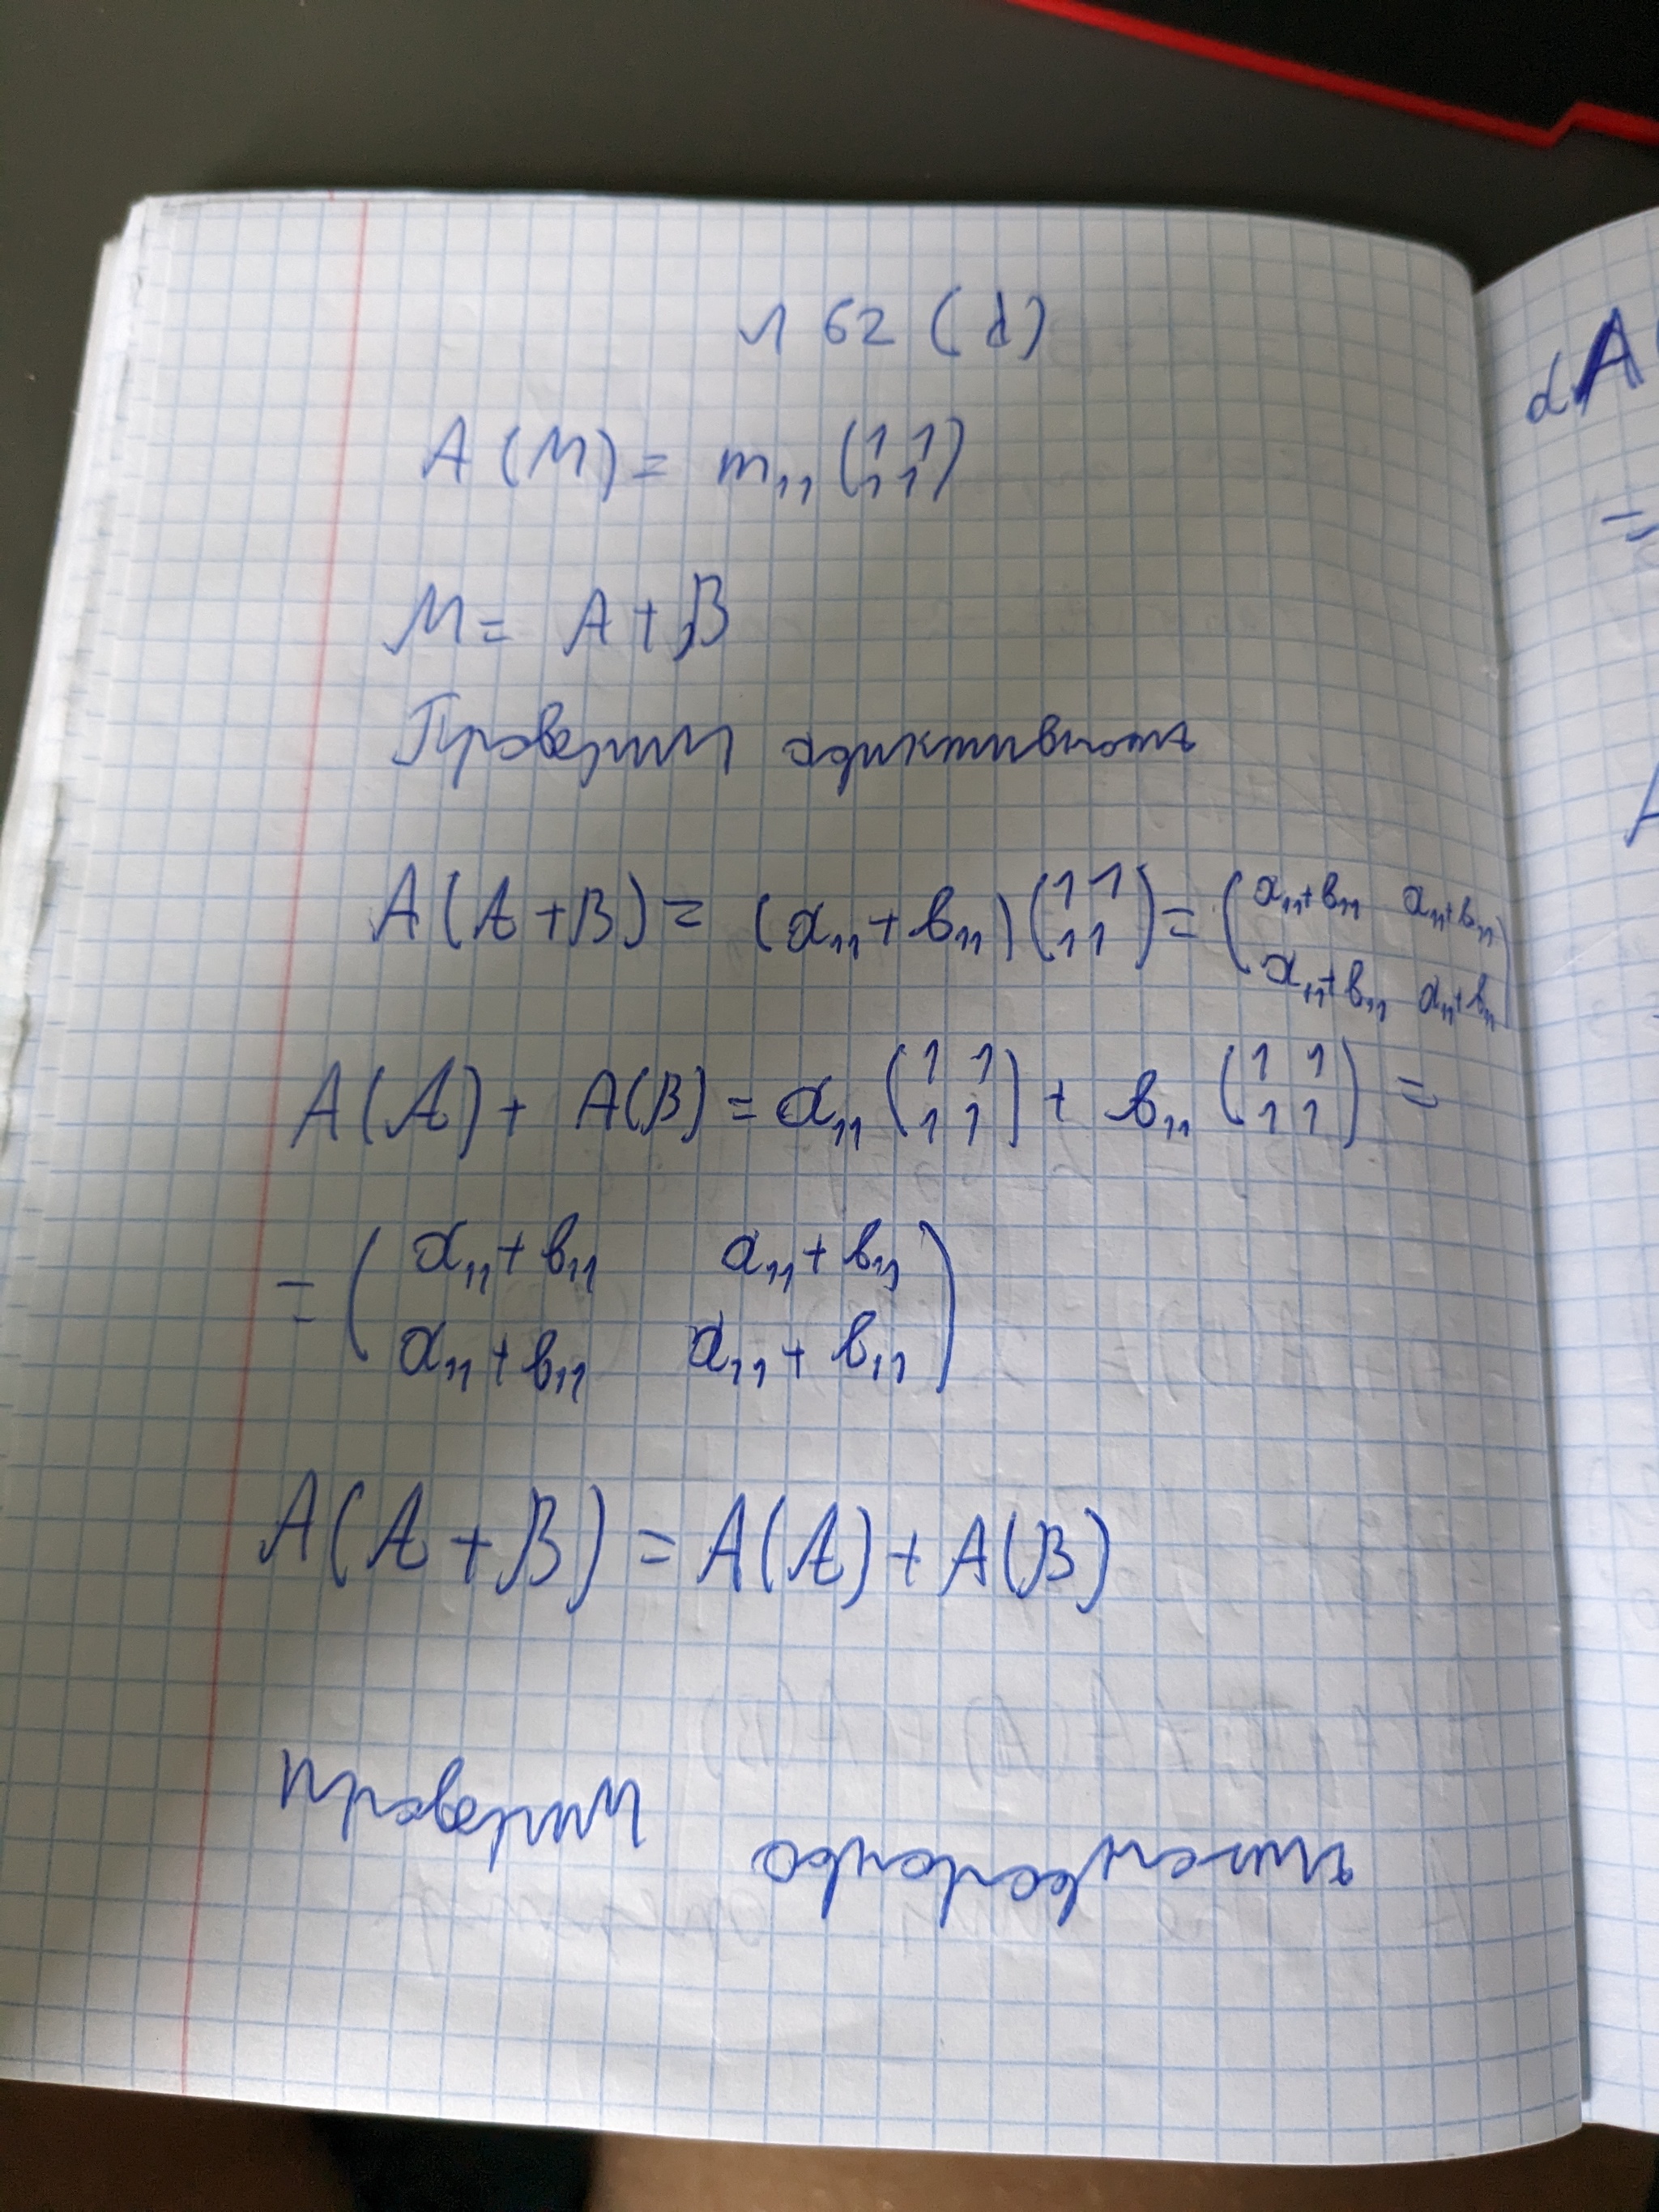 № 62 (d)
A (M) = m₁₁ (1 1
1 1)
M = A + B
Проверим адиктивность
A (A + B) = (a₁₁ + b₁₁) (1 1
1 1) = (a₁₁+b₁₁ a₁₁+b₁₁
a₁₁+b₁₁ a₁₁+b₁₁)
A (A) + A(B) = a₁₁ (1 1
1 1) + b₁₁ (1 1
1 1) =
= (a₁₁ + b₁₁ a₁₁ + b₁₁
a₁₁ + b₁₁ a₁₁ + b₁₁)
A (A + B) = A (A) + A (B)
Проверим
αA
=
A